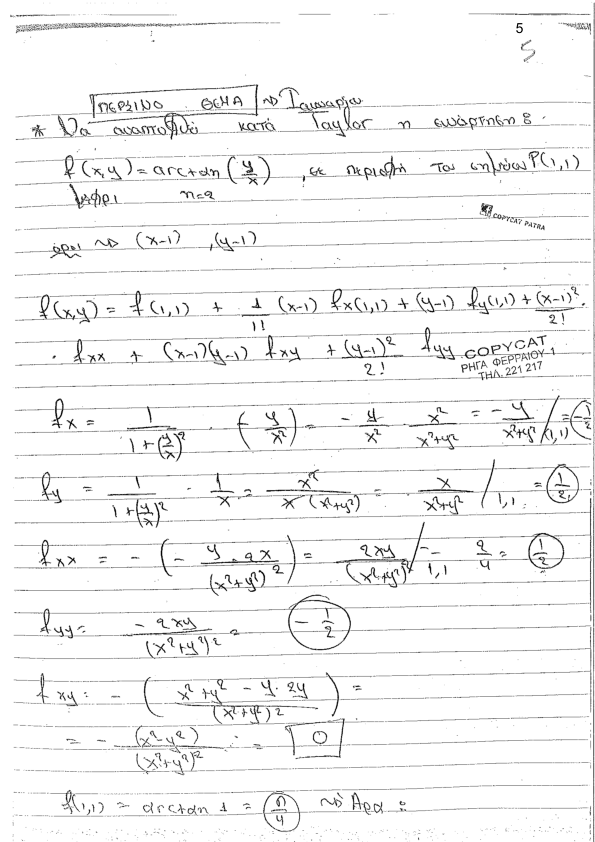 5
5
ΠΕΡΣΙΝΟ ΘΕΜΑ ⇝ Ιανουαρίου
* Να αναπτυχθεί κατά Taylor η συνάρτηση:
f(x,y) = arctan (y/x), σε περιοχή του σημείου P(1,1)
μέχρι n=2
COPYCAT PATRA
όροι ⇝ (x-1), (y-1)
f(x,y) = f(1,1) + 1/1! (x-1) fx(1,1) + (y-1) fy(1,1) + (x-1)²/2! ·
· fxx + (x-1)(y-1) fxy + (y-1)²/2! fyy
COPYCAT
ΡΗΓΑ ΦΕΡΡΑΙΟΥ 1
ΤΗΛ. 221 217
fx = 1/(1+(y/x)²) · (- y/x²) = - y/x² · x²/(x²+y²) = - y/(x²+y²) /(1,1) = (-1/2)
fy = 1/(1+(y/x)²) · 1/x = x²/(x·(x²+y²)) = x/(x²+y²) /1,1 = (1/2)
fxx = - (- y·2x/(x²+y²)²) = 2xy/(x²+y²)² /1,1 = 2/4 = (1/2)
fyy = -2xy/(x²+y²)² = (-1/2)
fxy = - ((x²+y² - y·2y)/(x²+y²)²) =
= - (x²-y²)/(x²+y²)² = 0
f(1,1) = arctan 1 = (π/4) ⇝ Άρα: